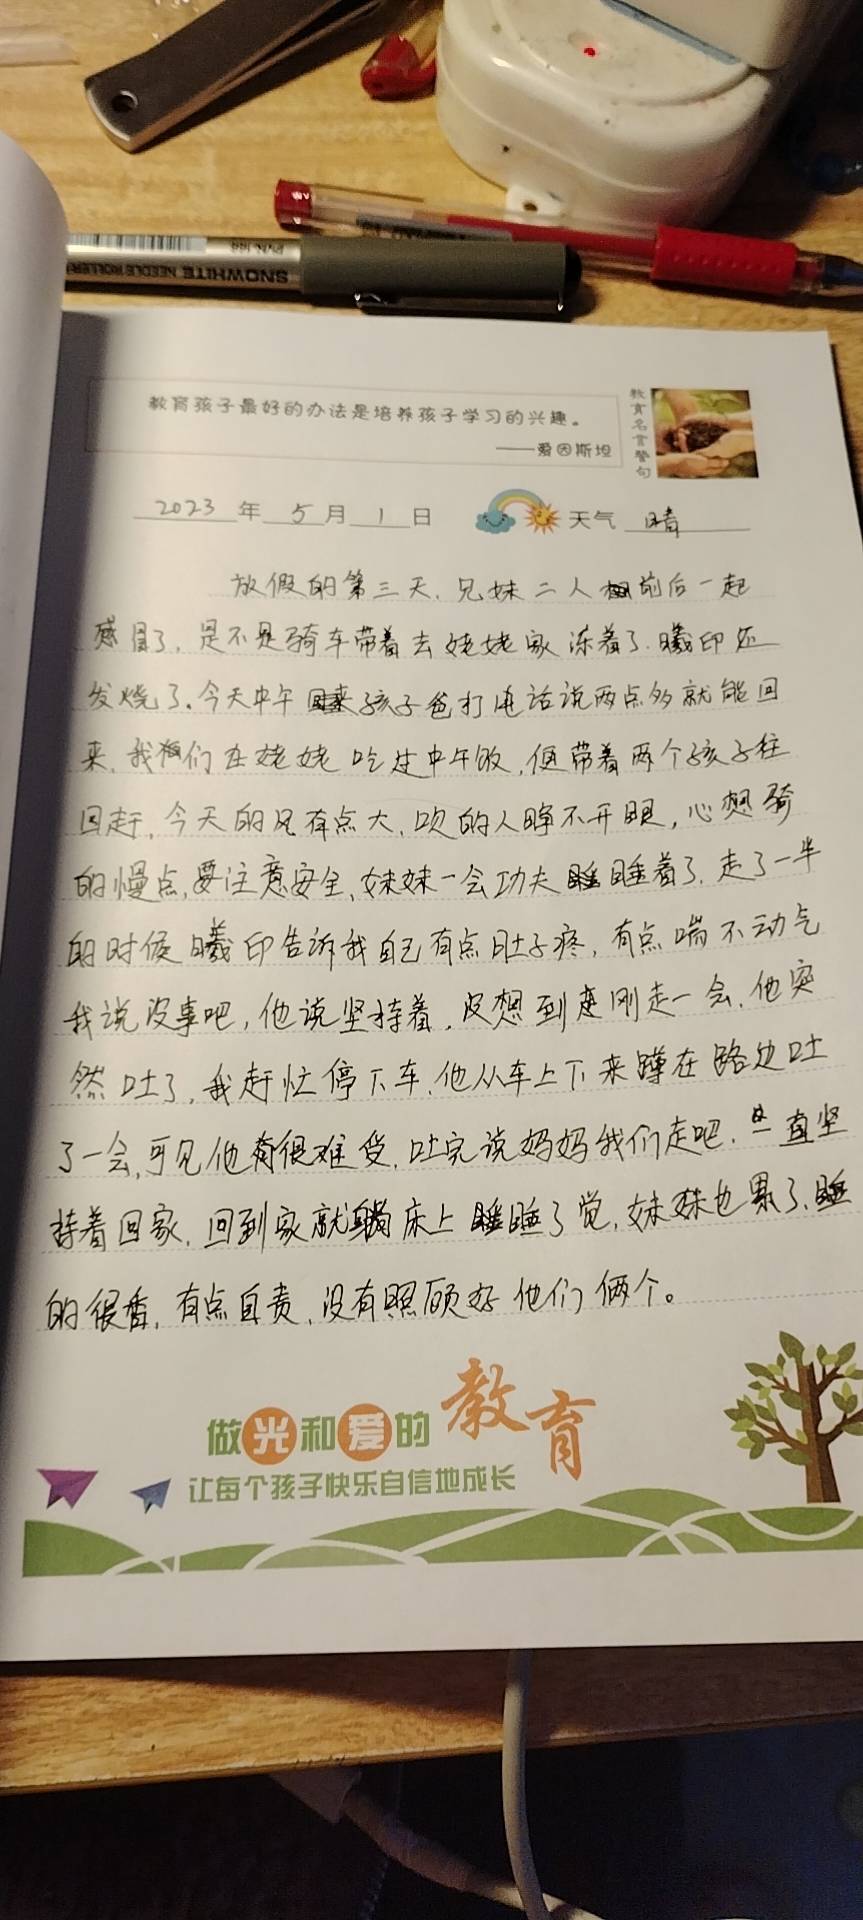 SNOWHITE NEEDLE ROLLER
PVN-166
教育孩子最好的办法是培养孩子学习的兴趣。
——爱因斯坦
教育名言警句
2023年5月1日 天气 晴
放假的第三天,兄妹二人前后一起
感冒了,是不是骑车带着去姥姥家冻着了.曦印还
发烧了。今天中午孩子爸打电话说两点多就能回
来,我们在姥姥吃过中午饭,便带着两个孩子往
回赶,今天的风有点大,吹的人睁不开眼,心想骑
的慢点,要注意安全,妹妹一会功夫睡着了,走了一半
的时候曦印告诉我自己有点肚子疼,有点喘不动气
我说没事吧,他说坚持着,没想到刚走一会,他突
然吐了,我赶忙停下车,他从车上下来蹲在路边吐
了一会,可见他有很难受,吐完说妈妈我们走吧,一直坚
持着回家,回到家就躺床上睡了觉,妹妹也累了,睡
的很香,有点自责,没有照顾好他们俩个。
做光和爱的教育
让每个孩子快乐自信地成长